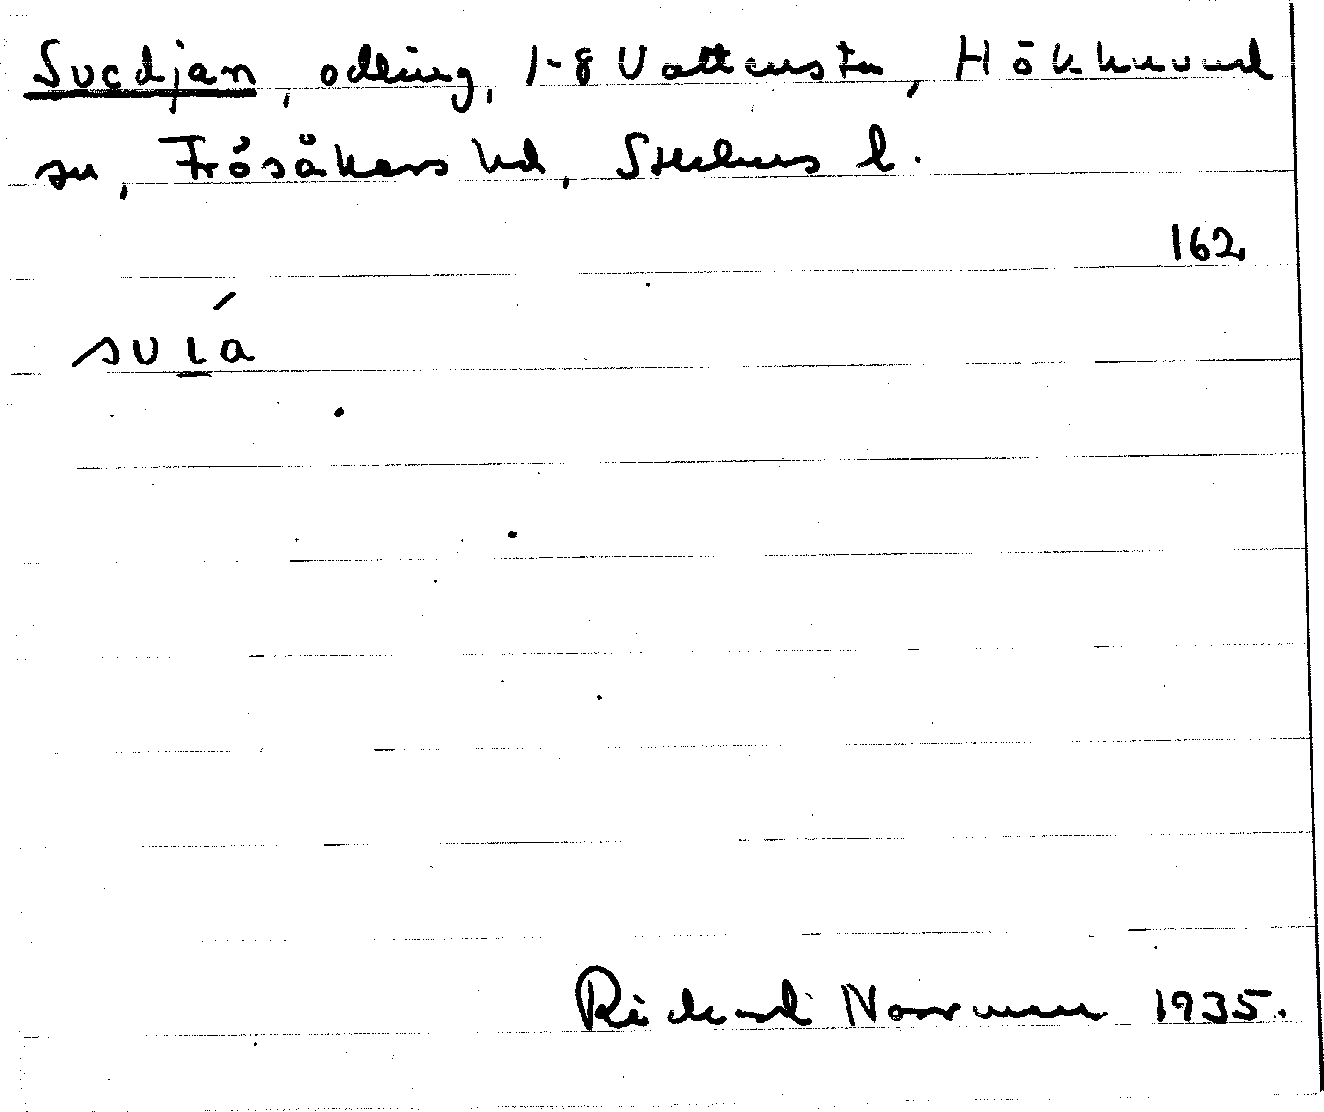 Svedjan, odling, 1-8 Vattensta, Hökhuvud
sn, Frösåkers hd, Sthlms l.
162
Rickard Norrman 1935.